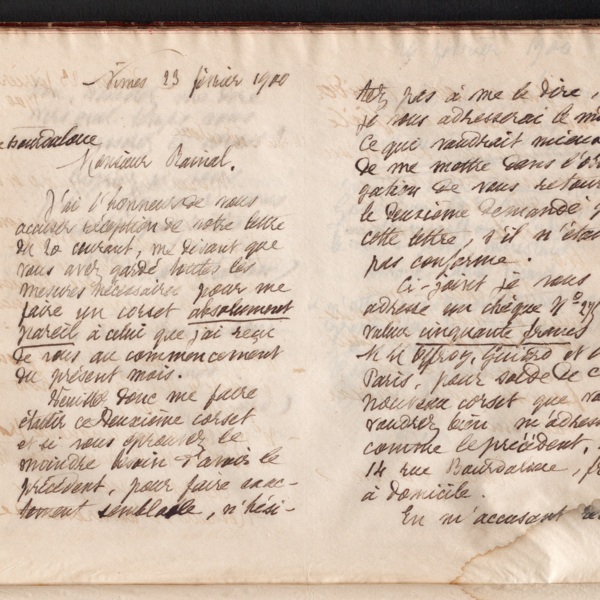 Nîmes 23 février 1900
Bourdaloue
Monsieur Rainal.
J'ai l'honneur de vous
accuser réception de votre lettre
du 20 courant, me disant que
vous avez gardé toutes les
mesures nécessaires pour me
faire un corset absolument
pareil à celui que j'ai reçu
de vous au commencement
du présent mois.
Veuillez donc me faire
établir ce deuxième corset
et si vous éprouvez le
moindre besoin d'avoir le
précédent, pour faire exac-
tement semblable, n'hési-
tez pas à me le dire,
je vous adresserai le
ce qui vaudrait mieux
de me mettre dans
gation de vous
le deuxième demandé
cette lettre, s'il n'était
pas conforme.
Ci-joint je vous
adresse un chèque N°
valeur cinquante francs
Offroy, Guiard et
Paris, pour solde de
nouveau corset que
voudrez bien m'adresser
comme le précédent,
14 rue Bourdaloue,
à domicile.
En m'accusant